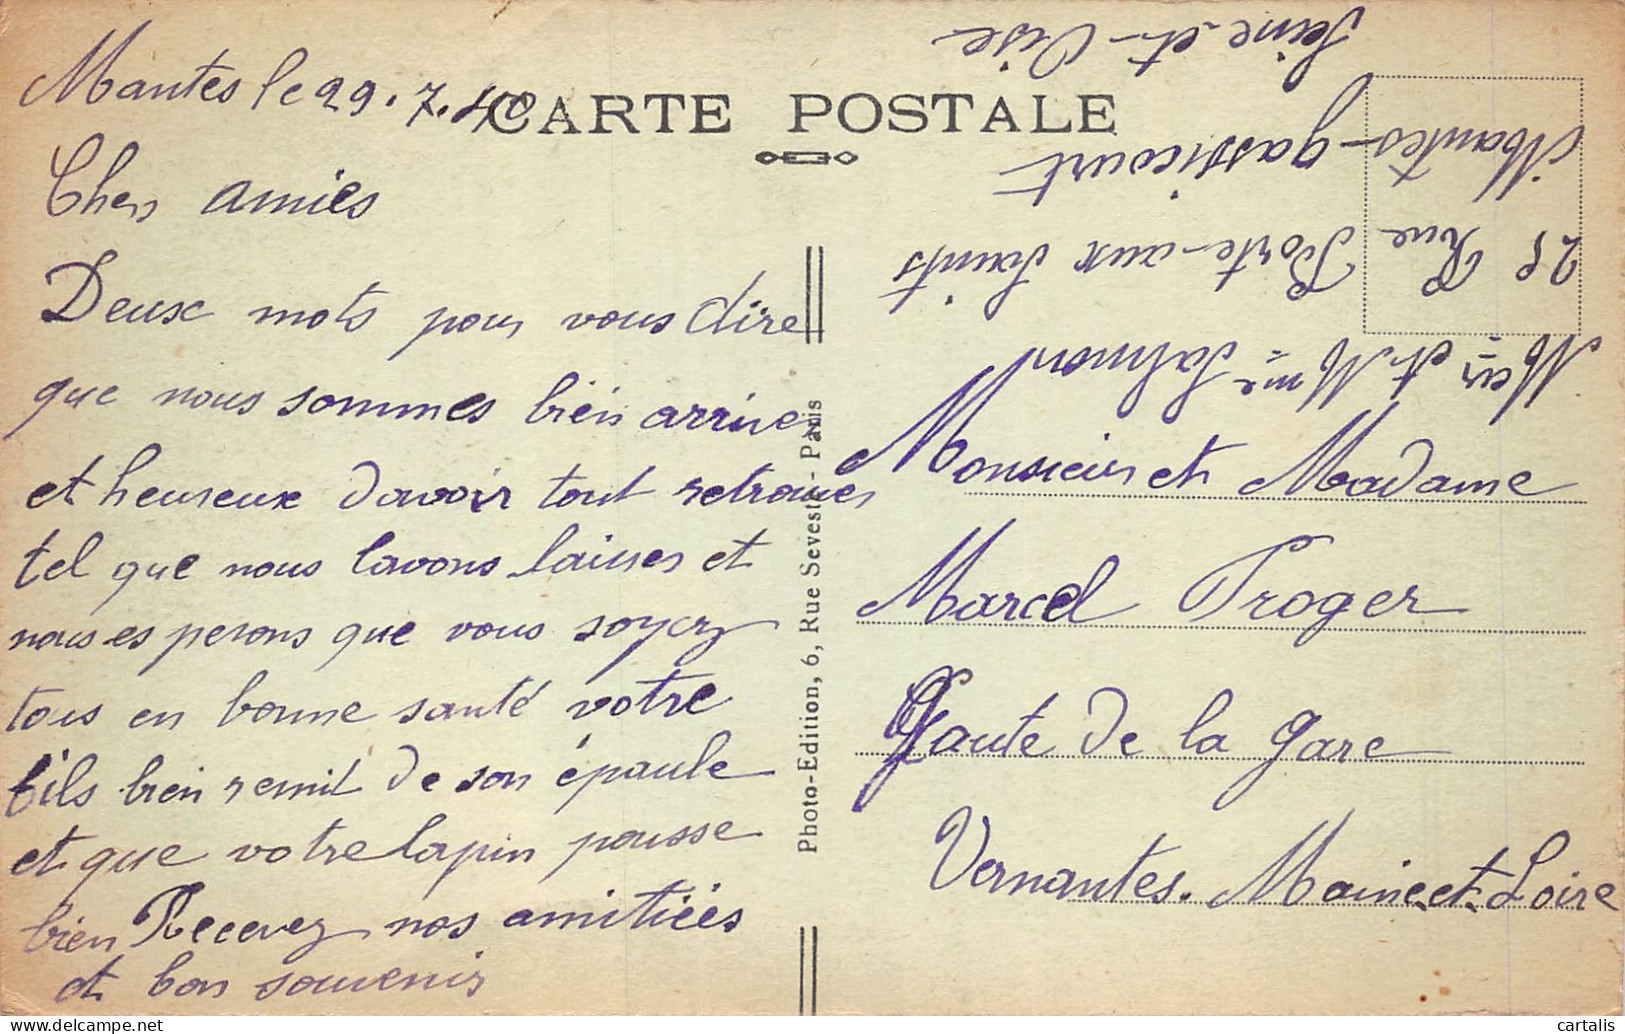 Mantes le 29.7.40
CARTE POSTALE
Chers amies
Deux mots pour vous dire
que nous sommes bien arrive
et heureux davoir tout retrouver
tel que nous lavons laisser et
nous esperons que vous soyez
tous en bonne santé votre
fils bien remit de son épaule
et que votre lapin pousse
bien Recevez nos amitiées
et bon souvenir
Photo-Edition, 6, Rue Seveste - Paris
Monsieur et Madame
Marcel Proger
Haute de la gare
Vernantes. Maine et Loire
Meur et Mme Salmon
25 Rue Porte-aux Saints
Mantes-gassicourt
Seine et Oise
cartalis